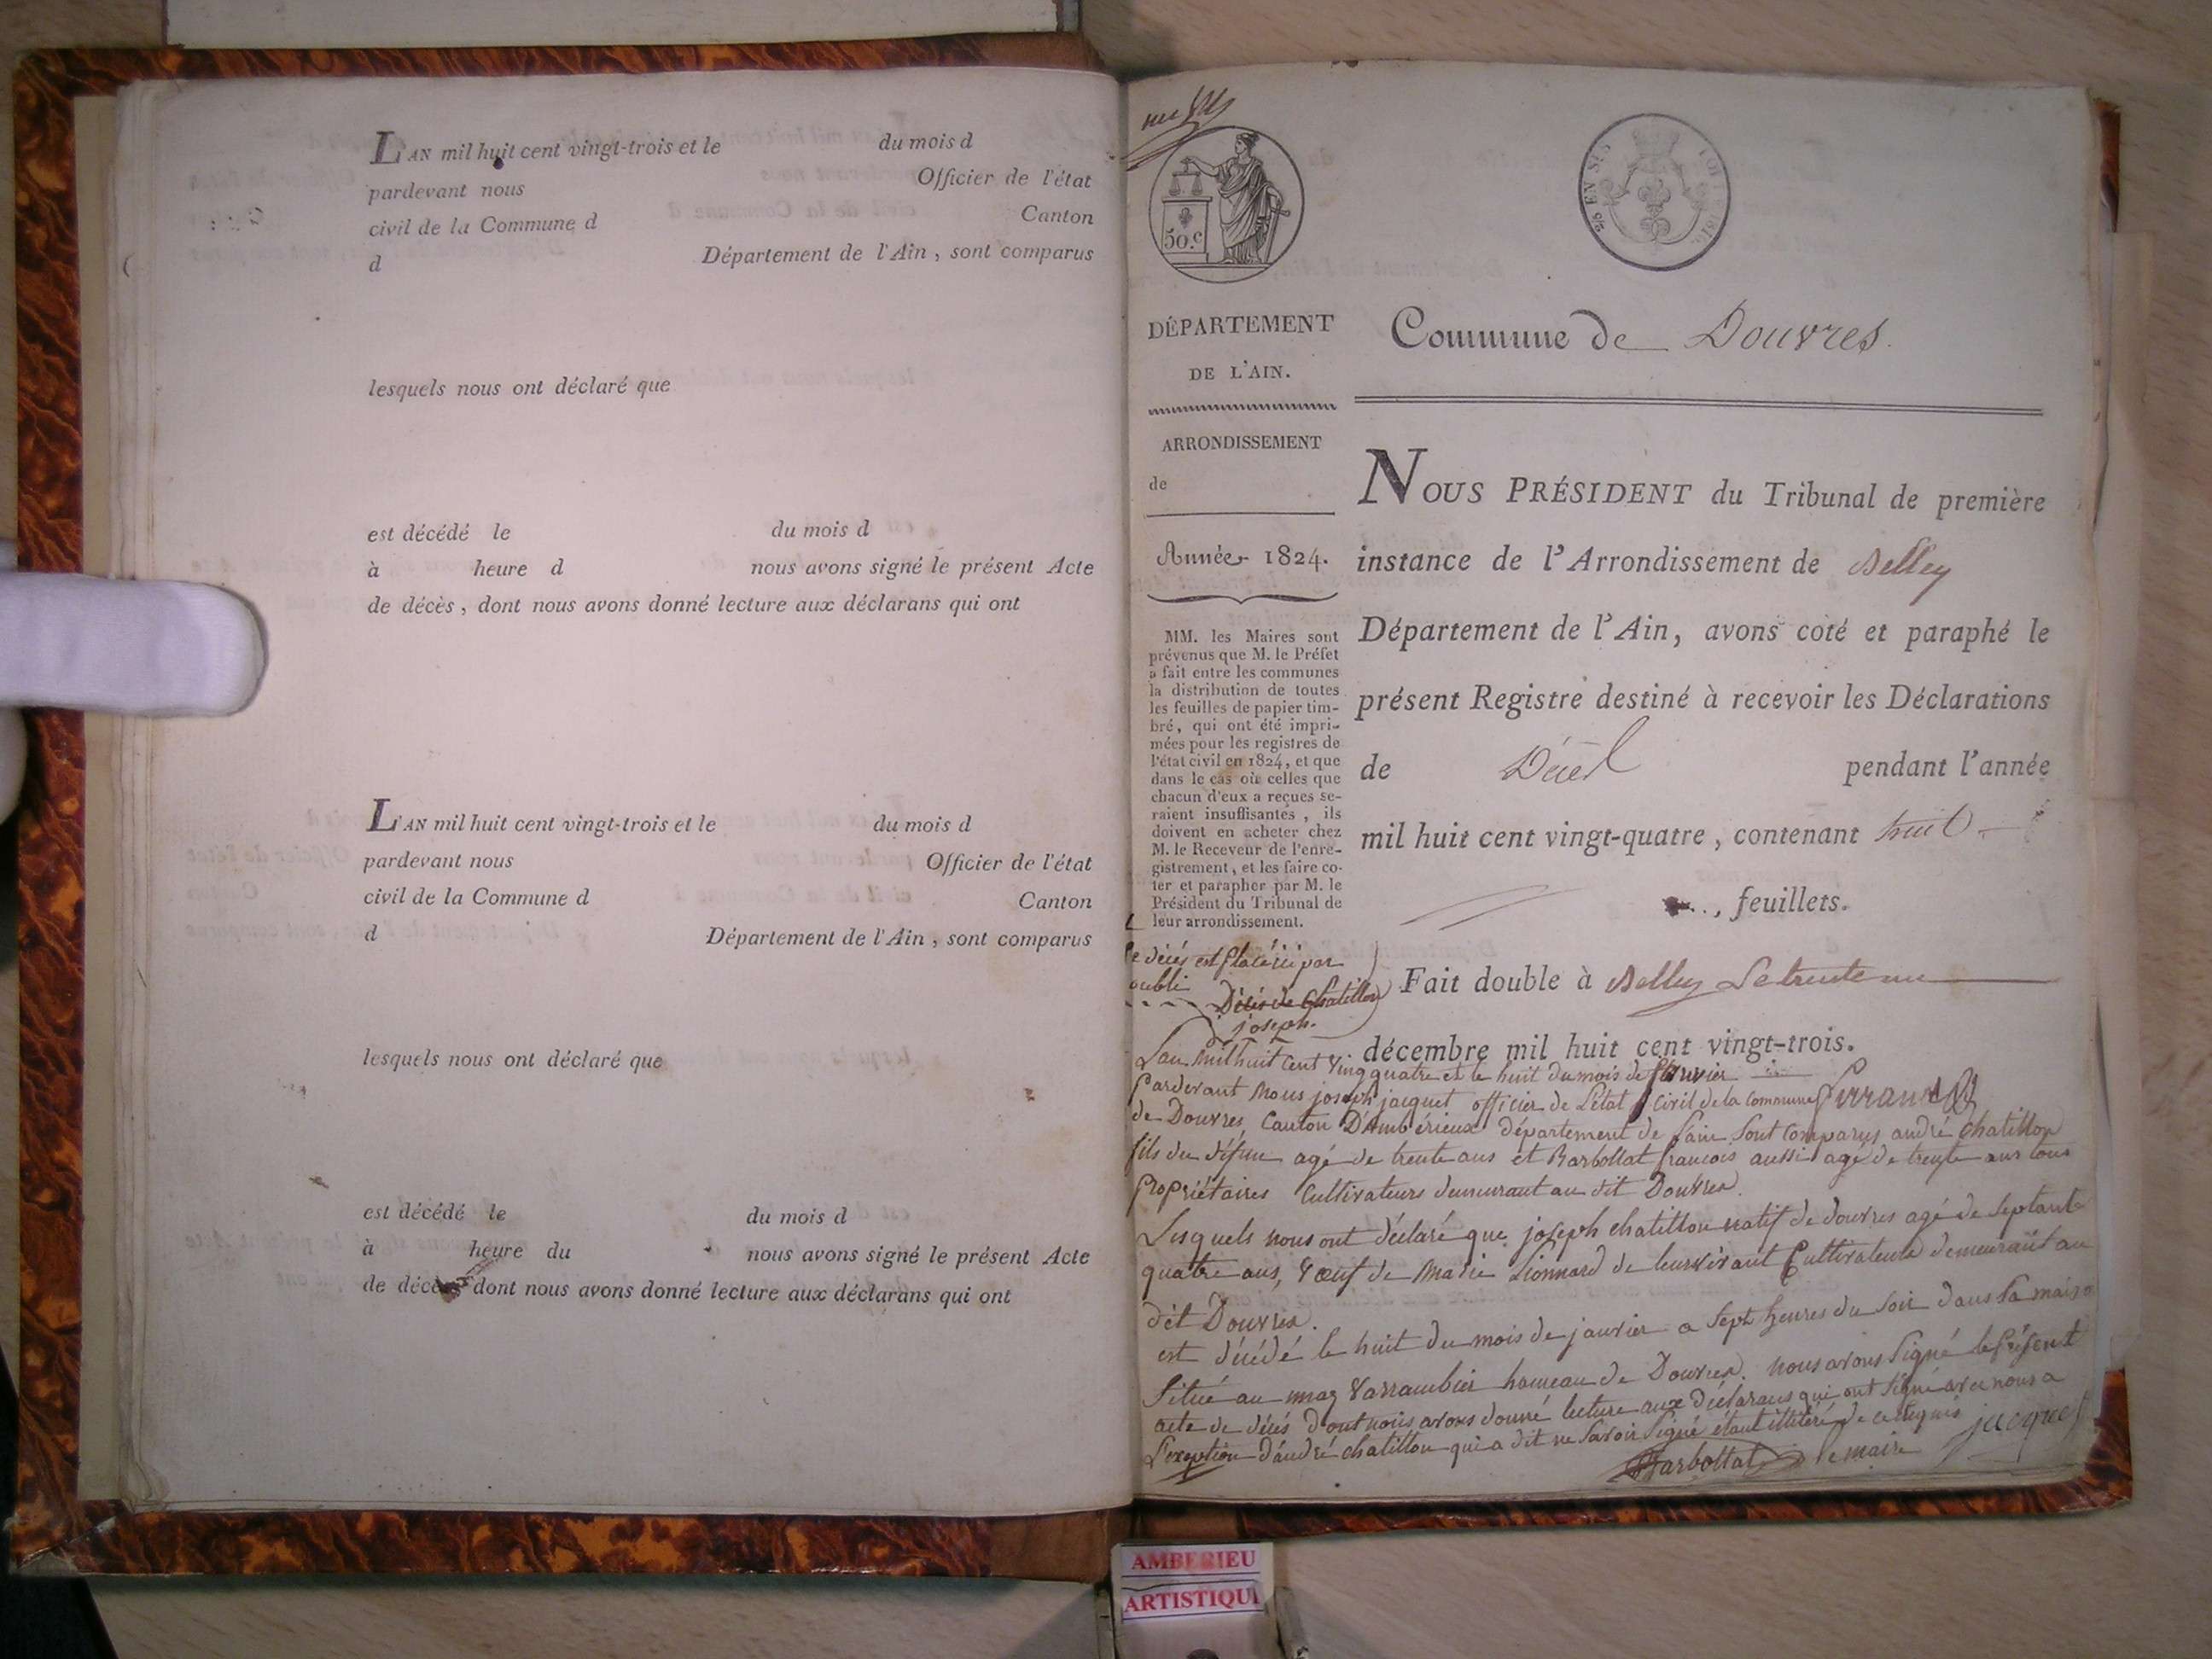 L'AN mil huit cent vingt-trois et le du mois d
pardevant nous Officier de l'état
civil de la Commune d Canton
d Département de l'Ain, sont comparus
lesquels nous ont déclaré que
est décédé le du mois d
à heure d nous avons signé le présent Acte
de décès, dont nous avons donné lecture aux déclarans qui ont
L'AN mil huit cent vingt-trois et le du mois d
pardevant nous Officier de l'état
civil de la Commune d Canton
d Département de l'Ain, sont comparus
lesquels nous ont déclaré que
est décédé le du mois d
à heure du nous avons signé le présent Acte
de décès dont nous avons donné lecture aux déclarans qui ont
50.c
DÉPARTEMENT
DE L'AIN.
ARRONDISSEMENT
de
Année 1824.
MM. les Maires sont
prévenus que M. le Préfet
a fait entre les communes
la distribution de toutes
les feuilles de papier tim-
bré, qui ont été impri-
mées pour les registres de
l'état civil en 1824, et que
dans le cas où celles que
chacun d'eux a reçues se-
raient insuffisantes, ils
doivent en acheter chez
M. le Receveur de l'enre-
gistrement, et les faire co-
ter et parapher par M. le
Président du Tribunal de
leur arrondissement.
Commune de Douvres.
NOUS PRÉSIDENT du Tribunal de première
instance de l'Arrondissement de Belley
Département de l'Ain, avons coté et paraphé le
présent Registre destiné à recevoir les Déclarations
de Décès pendant l'année
mil huit cent vingt-quatre, contenant huit
feuillets.
Fait double à Belley Le trente un
décembre mil huit cent vingt-trois.
Le décés est placé ici par
oubli
Décès de Chatillon
joseph.
L'an mil huit cent vingquatre et le huit du mois de janvier
Pardevant Nous joseph jacquet officier de L'état civil de la Commune
de Douvres, Canton D'Ambérieux département de L'ain sont Comparus andré Chatillon
fils du défun agé de trente ans et Barbollat francois aussi agé de trente ans tous
Propriétaires Cultivateurs demeurant au dit Douvres.
Lesquels nous ont déclaré que joseph chatillon natif de douvres agé de septante
quatre ans, vœuf de Marie Lionnard de leur vivant Cultivateurs demeurant au
dit Douvres.
est décédé le huit du mois de janvier a sept heures du soir dans sa maison
situé au maz Varrambier hameau de Douvres. nous avons signé le présent
acte de décés dont nous avons donné lecture aux déclarans qui ont signé avec nous a
L'exeption d'andré chatillon qui a dit ne savoir signé étant illitéré de ce requis
Barbollat le maire jacquet
AMBERIEU
ARTISTIQUE